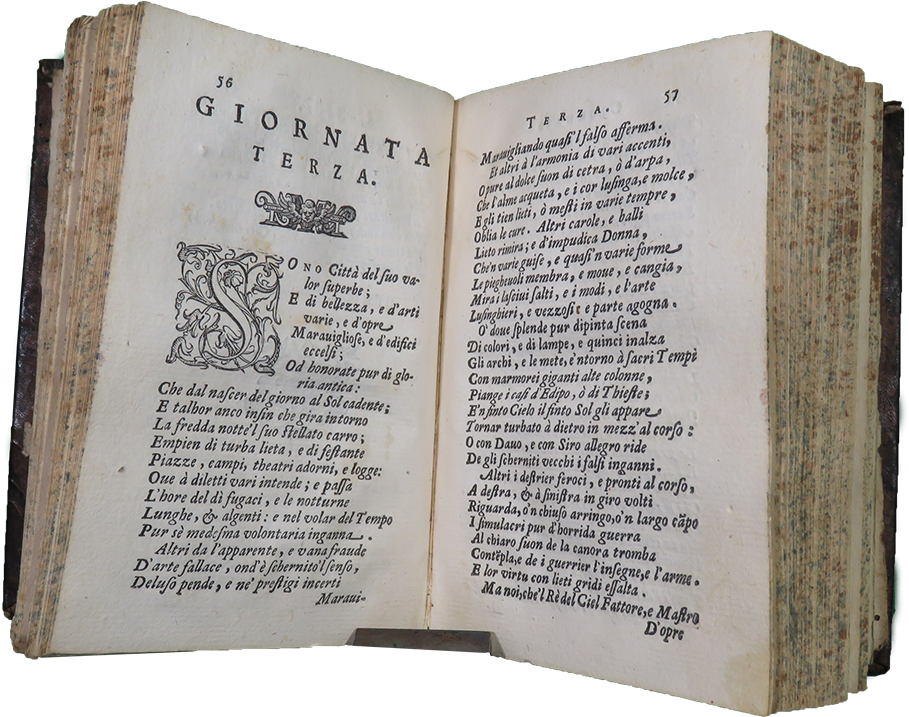 56
GIORNATA
TERZA.
SONO Città del suo va-
lor superbe;
E di bellezza, e d'arti
varie, e d'opre
Marauigliose, e d'edifici
eccelsi;
Od honorate pur di glo-
ria antica:
Che dal nascer del giorno al Sol cadente;
E talhor anco insin che gira intorno
La fredda notte'l suo stellato carro;
Empien di turba lieta, e di festante
Piazze, campi, theatri adorni, e logge:
Oue à diletti vari intende; e passa
L'hore del dì fugaci, e le notturne
Lunghe, & algenti: e nel volar del Tempo
Pur sè medesma volontaria inganna.
Altri da l'apparente, e vana fraude
D'arte fallace, ond'è schernito'l senso,
Deluso pende, e ne' prestigi incerti
Maraui-
TERZA.
57
Marauigliando quasi'l falso afferma.
Et altri à l'armonia di vari accenti,
Opure al dolce suon di cetra, ò d'arpa,
Che l'alme acqueta, e i cor lusinga, e molce,
E gli tien lieti, ò mesti in varie tempre,
Oblia le cure. Altri carole, e balli
Lieto rimira; e d'impudica Donna,
Che'n varie guise, e quasi'n varie forme
Le pieghuoli membra, e moue, e cangia,
Mira i lasciui salti, e i modi, e l'arte
Lusinghieri, e vezzosi: e parte agogna.
O' doue splende pur dipinta scena
Di colori, e di lampe, e quinci inalza
Gli archi, e le mete, e'ntorno à sacri Tempi
Con marmorei giganti alte colonne,
Piange i casi d'Edipo, ò di Thieste;
E'n finto Cielo il finto Sol gli appare
Tornar turbato à dietro in mezz'al corso:
O con Dauo, e con Siro allegro ride
De gli scherniti vecchi i falsi inganni.
Altri i destrier feroci, e pronti al corso,
A destra, & à sinistra in giro volti
Riguarda, o'n chiuso arringo, o'n largo cãpo
I simulacri pur d'horrida guerra
Al chiaro suon de la canora tromba
Contẽpla, e de i guerrier l'insegne, e l'arme.
E lor virtu con lieti gridi essalta.
Ma noi, che'l Rè del Ciel Fattore, e Mastro
D'opre